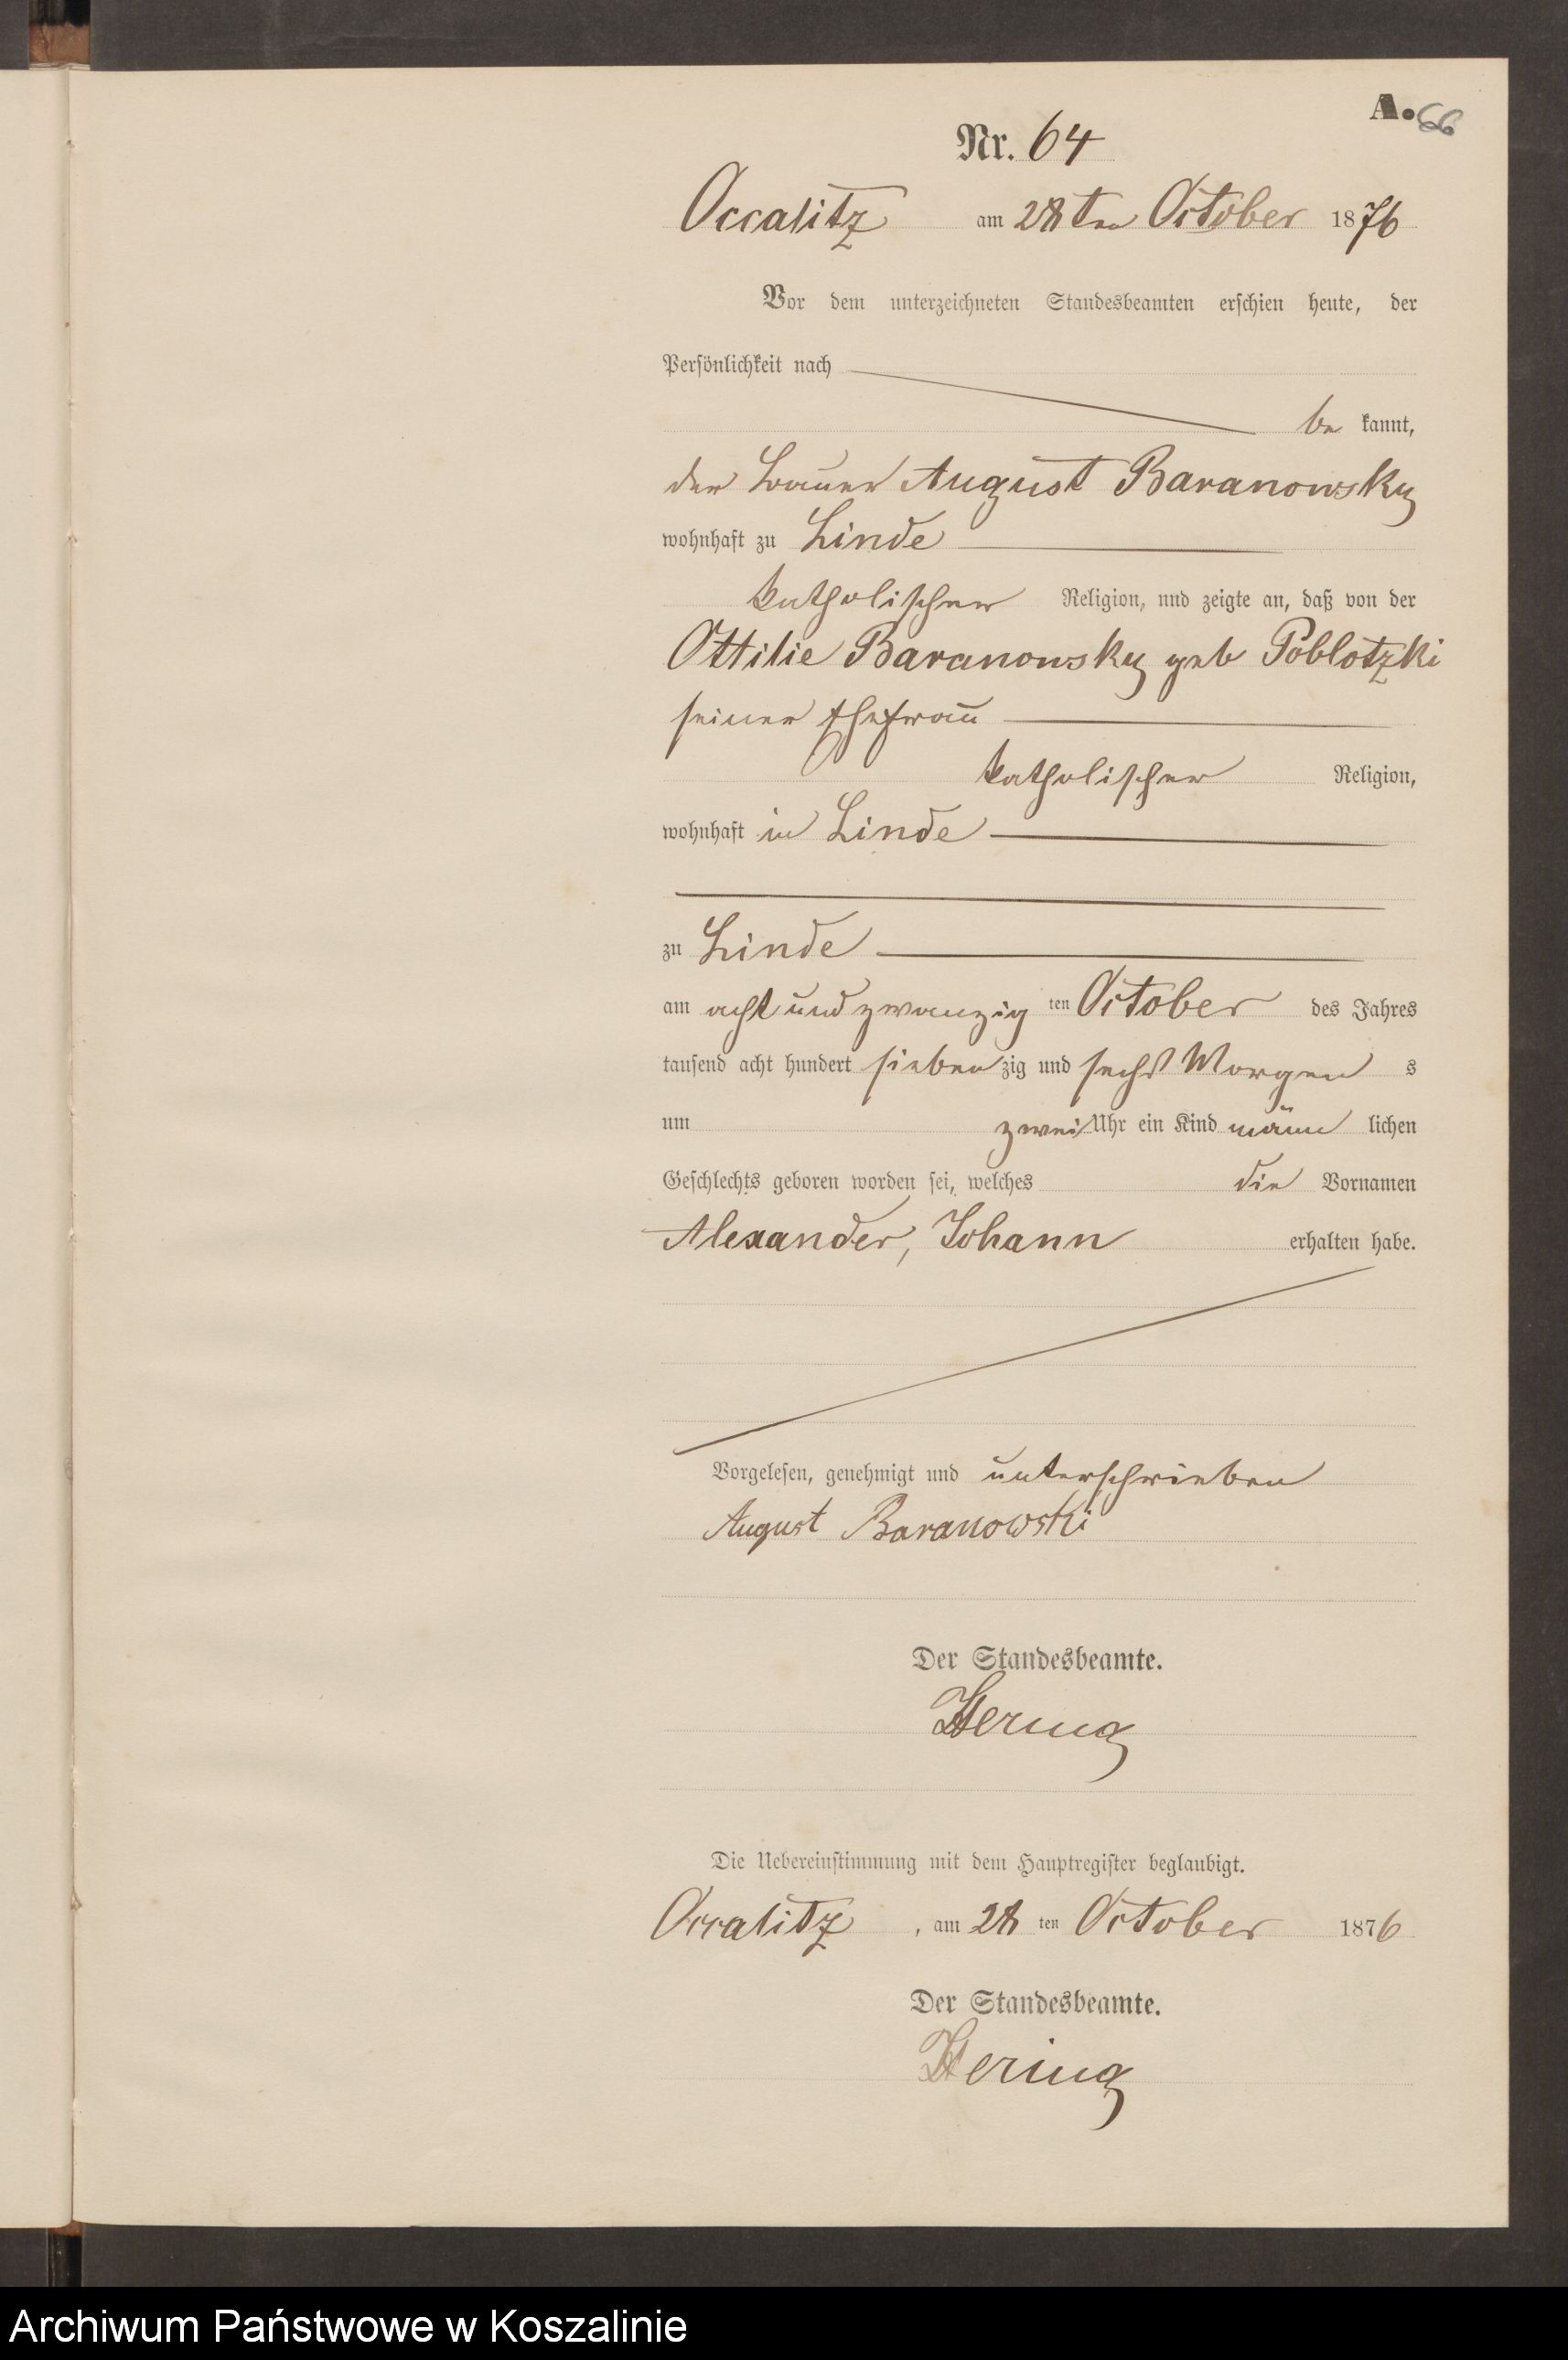 A. 66
Nr. 64
Occalitz am 28ten October 1876
Vor dem unterzeichneten Standesbeamten erschien heute, der
Persönlichkeit nach
be kannt,
der Bauer August Baranowsky
wohnhaft zu Linde
katholischer Religion, und zeigte an, daß von der
Ottilie Baranowsky geb Poblotzki
seiner Ehefrau
katholischer Religion,
wohnhaft in Linde
zu Linde
am acht und zwanzig ten October des Jahres
tausend acht hundert sieben zig und sechs Morgen s
um zwei Uhr ein Kind männ lichen
Geschlechts geboren worden sei, welches die Vornamen
Alexander, Johann erhalten habe.
Vorgelesen, genehmigt und unterschrieben
August Baranowski
Der Standesbeamte.
Hering
Die Uebereinstimmung mit dem Hauptregister beglaubigt.
Occalitz, am 28 ten October 1876
Der Standesbeamte.
Hering
Archiwum Państwowe w Koszalinie